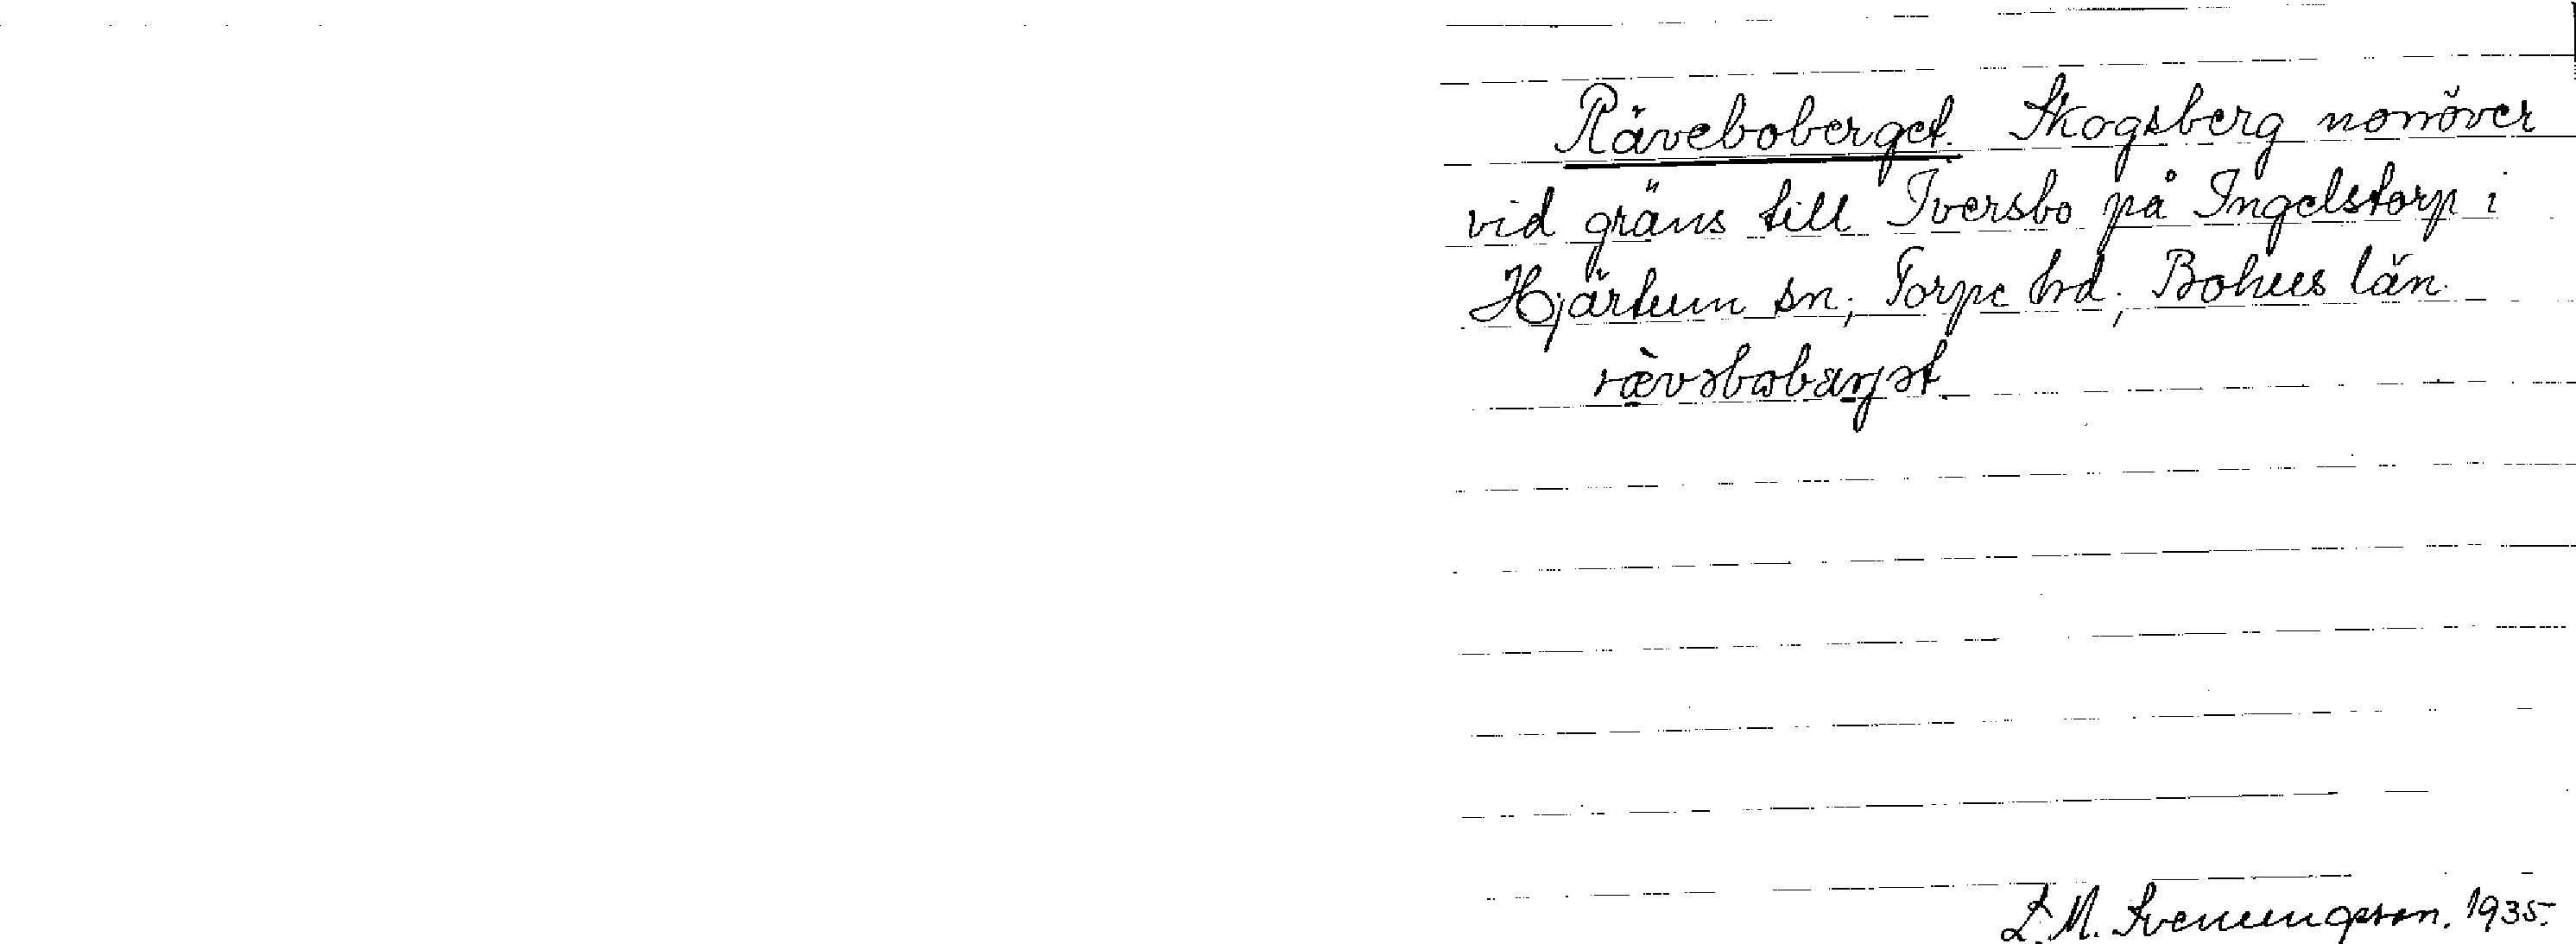 Räveboberget. Skogsberg norröver
vid gräns till Iversbo på Ingelstorp i
Hjärtum sn, Torpe hd, Bohus län.
rævəbobærjət
L. M. Svenungsson. 1935.